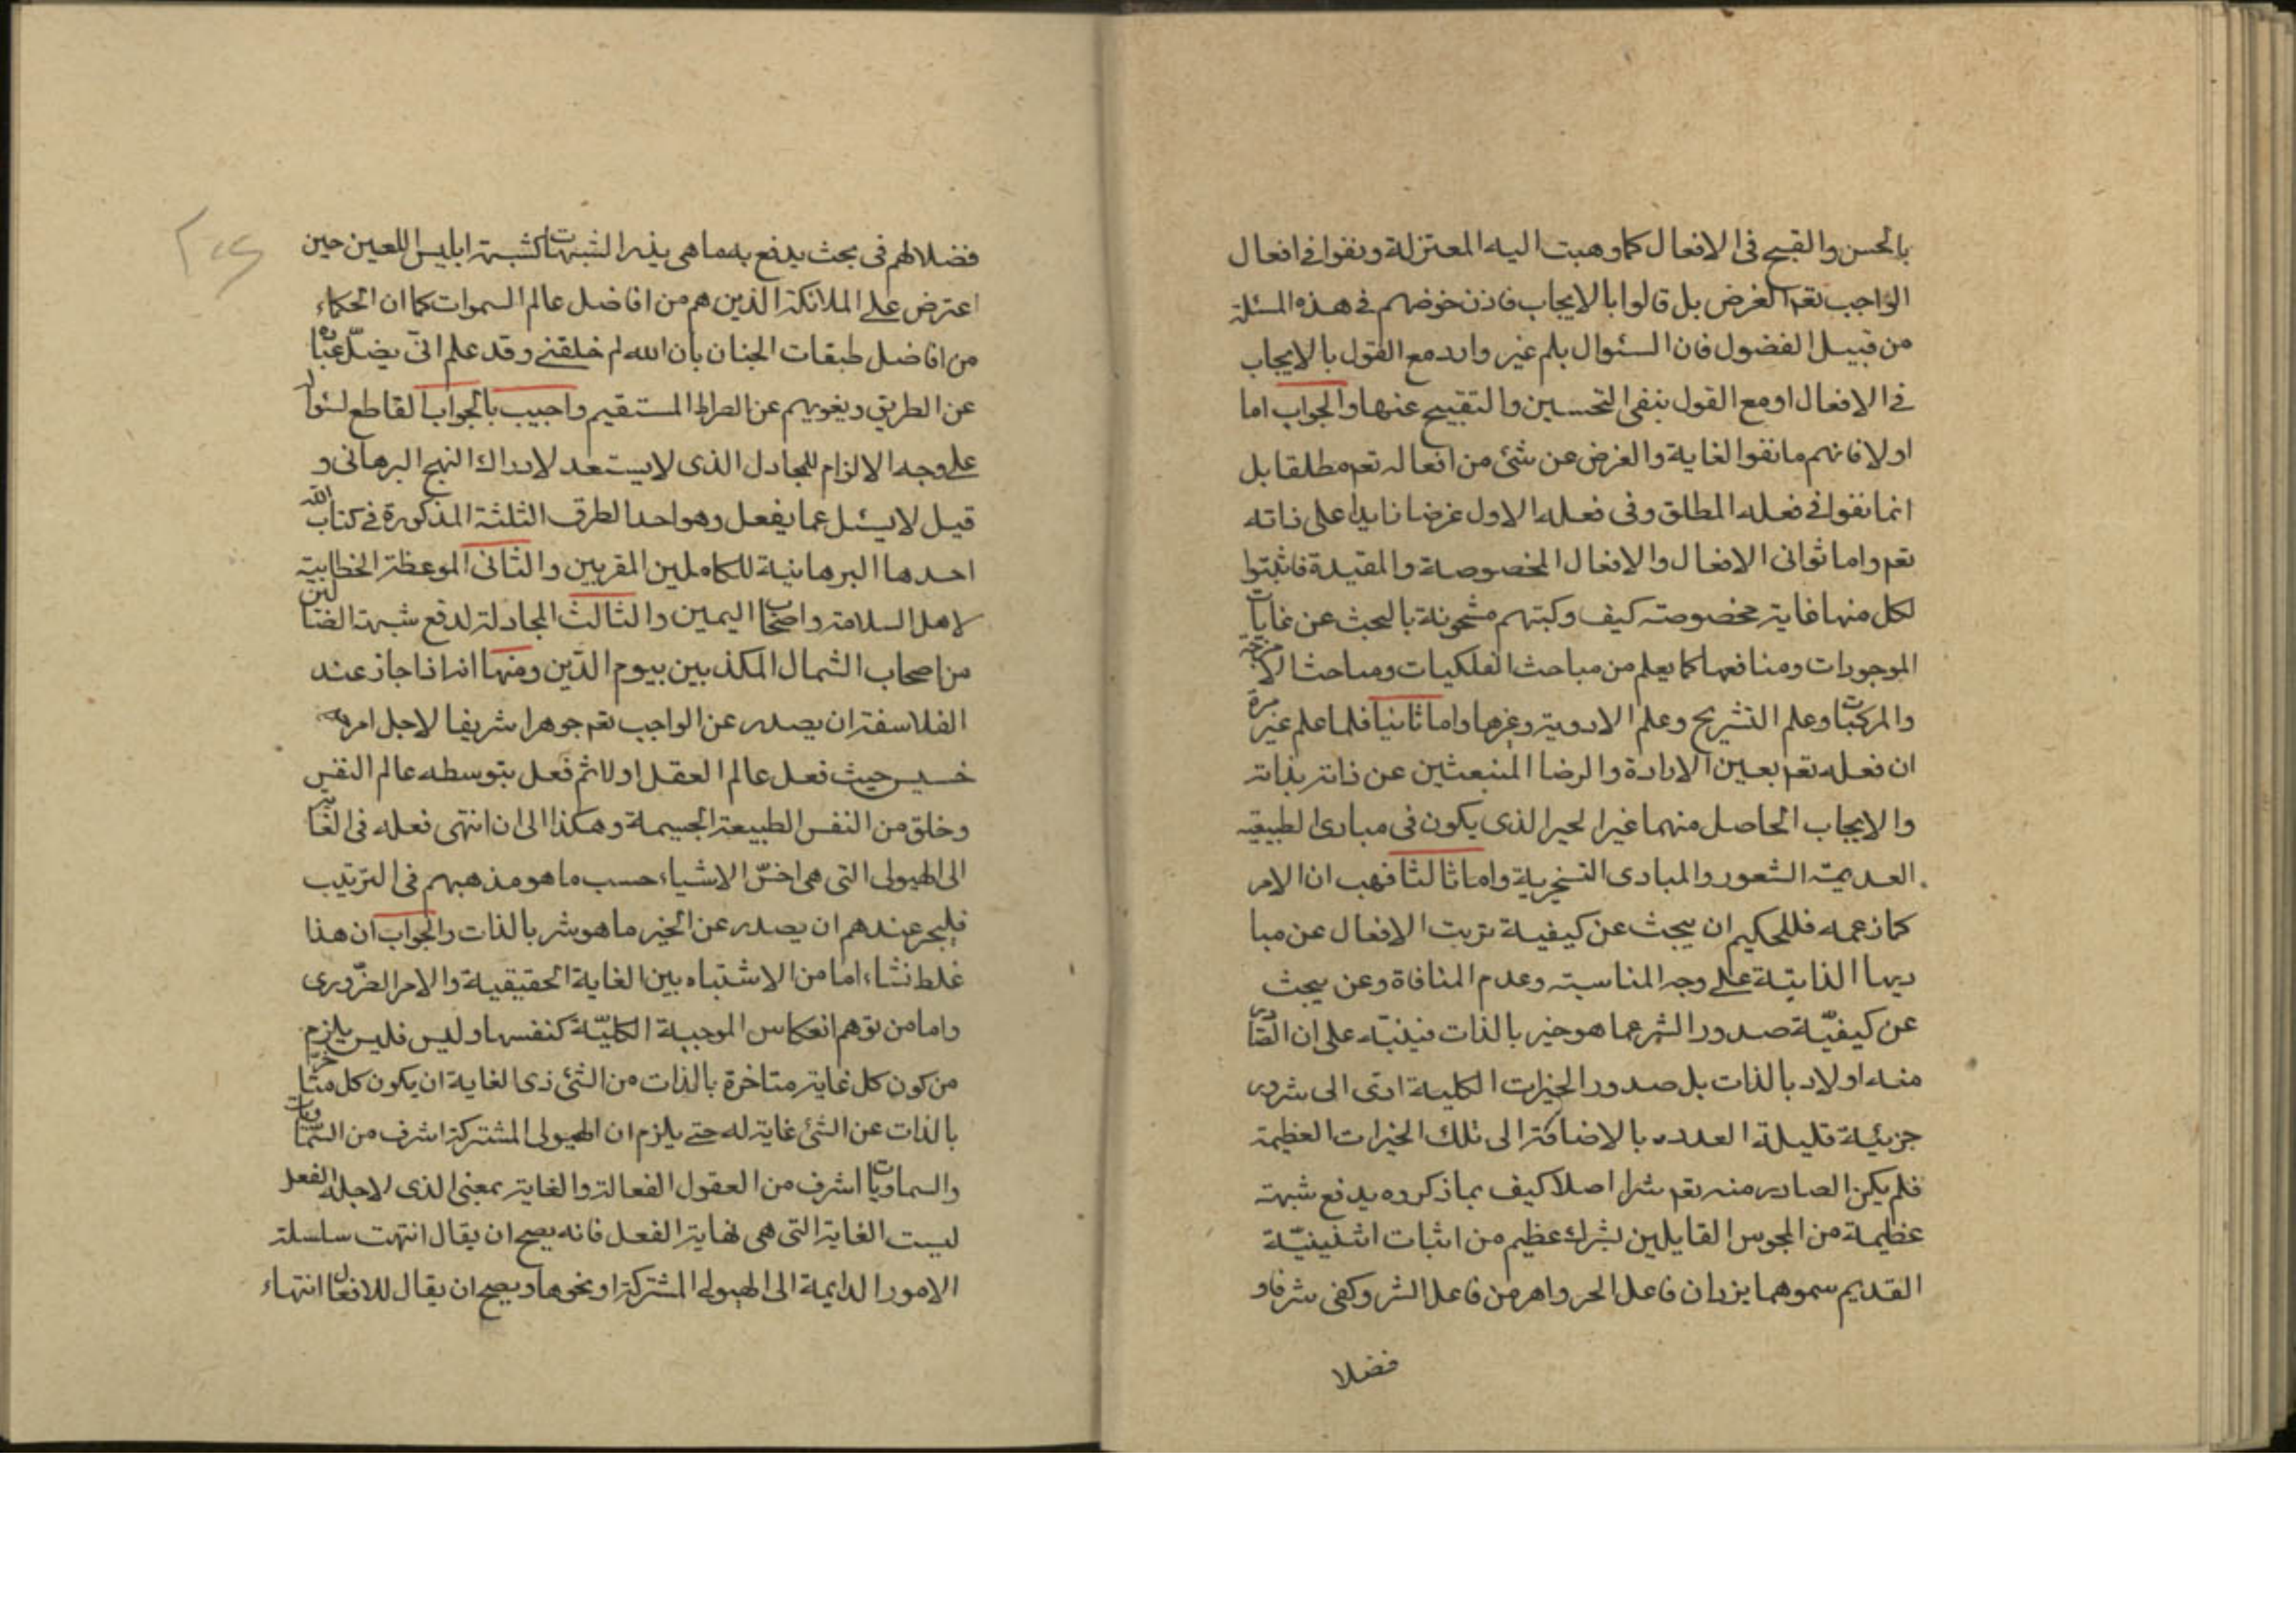 بالحسن والقبح فى الافعال كما وهبت اليه المعتزلة ونفوا فى افعال
الواجب تعم الغرض بل قالوا بالايجاب فاذن خوضهم فى هذه المسئلة
من قبيل الفضول فان السئوال بلم غير وارد مع القول بالايجاب
فى الافعال او مع القول بنفى التحسين والتقبيح عنها والجواب اما
اولا فانهم ما نفوا الغاية والغرض عن شئ من افعاله تعم مطلقا بل
انما نفوا فى فعله المطلق وفى فعله الاول غرضا زايدا على ذاته
تعم واما ثوانى الافعال والافعال المخصوصة والمقيدة فاثبتوا
لكل منها غاية مخصوصة كيف وكتبهم مشحونة بالبحث عن غايات
الموجودات ومنافعها كما يعلم من مباحث الفلكيات ومباحث الامزجة
والمركبات وعلم التشريح وعلم الادوية وغيرها واما ثانيا فلما علم غير مرة
ان فعله تعم بعين الارادة والرضا المنبعثين عن ذاته بذاته
والايجاب الحاصل منهما غير الجبر الذى يكون فى مبادى الطبيعية
العديمة الشعور والمبادى التسخيرية واما ثالثا فهب ان الامر
كما زعمه فللحكيم ان يبحث عن كيفية ترتب الافعال عن مبا
ديها الذاتية على وجه المناسبة وعدم المنافاة وعن يبحث
عن كيفيّة صدور الشر عما هو خير بالذات فينبّه على ان الصادر
منه اولا وبالذات بل صدور الخيرات الكلية ادى الى شرور
جزئية قليلة العدد بالاضافة الى تلك الخيرات العظيمة
فلم يكن الصادر منه تعم شرا اصلا كيف بما ذكروه يدفع شبهة
عظيمة من المجوس القايلين بشرك عظيم من اثبات اثنينيّة
القديم سموهما يزدان فاعل الخر واهرمن فاعل الشر وكفى شرفا و
فضلا
فضلا لهم فى بحث يدفع به ما هى بذر الشبهات كشبهة ابليس اللعين حين
اعترض على الملائكة الذين هم من افاضل عالم السموات كما ان الحكماء
من افاضل طبقات الجنان بان الله لم خلقنى وقد علم انّى يضلّ عباده
عن الطريق ويغويهم عن الصراط المستقيم واجيب بالجواب القاطع لسئوال
على وجه الالزام للمجادل الذى لا يستعد لادراك النهج البرهانى و
قيل لا يسئل عما يفعل وهو احد الطرق الثلثة المذكورة فى كتاب الله
احدها البرهانية للكاملين المقربين والثانى الموعظة الخطابية
لاهل السلامة واصحاب اليمين والثالث المجادلة لدفع شبهة الضالين
من اصحاب الشمال المكذبين بيوم الدّين ومنها انه اذا جاز عند
الفلاسفة ان يصدر عن الواجب تعم جوهرا شريفا لاجل امر
خسيس حيث فعل عالم العقل اولا ثم فعل بتوسطه عالم النفس
وخلق من النفس الطبيعة الجسيمة وهكذا الى ان انتهى فعله فى الغاية
الى الهيولى التى هى اخسّ الاشياء حسب ما هو مذهبهم فى الترتيب
فليجز عندهم ان يصدر عن الخير ما هو شر بالذات والجواب ان هذا
غلط نشاء اما من الاشتباه بين الغاية الحقيقية والامر الضّرورى
واما من توهم انعكاس الموجبة الكليّة كنفسها وليس فليس يلزم
من كون كل غاية متاخرة بالذات من الشئ ذى الغاية ان يكون كل متاخر
بالذات عن الشئ غاية له حتى يلزم ان الهيولى المشتركة اشرف من السّماويات
والسماويات اشرف من العقول الفعالة والغاية بمعنى الذى لاجله الفعل
ليست الغاية التى هى نهاية الفعل فانه يصح ان يقال انتهت سلسلة
الامور الدايمة الى الهيولى المشتركة او نحوها ويصح ان يقال للافعال انتهاء